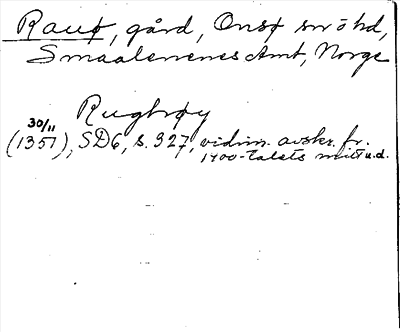 Rauø, gård, Onsø sn o hd,
Smaalenenes Amt, Norge
Rughrøy
30/11
(1357), SD6, s. 927, vidim. avskr. fr.
1400-talets mitt u.d.